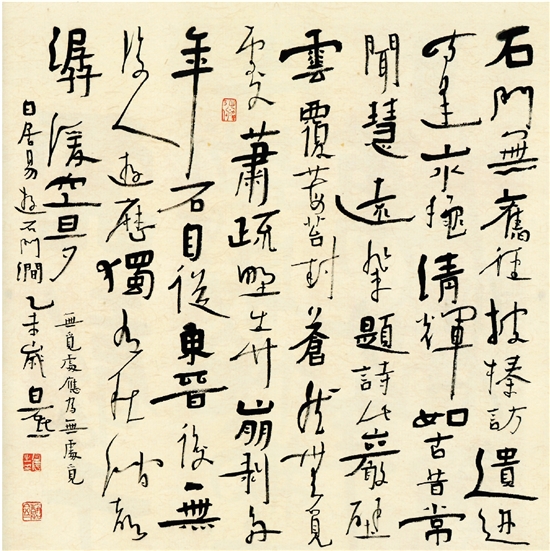 石門無舊徑披榛訪遺跡
時逢山水秋清輝如古昔常
聞慧遠輩題詩此巖壁
雲覆莓苔封蒼然無覓
處蕭疏野生竹崩剝多
年石自從東晉後無
復人遊歷獨有秋澗聲
潺湲空旦夕
無覓處應為無處覓
白居易遊石門澗乙未歲